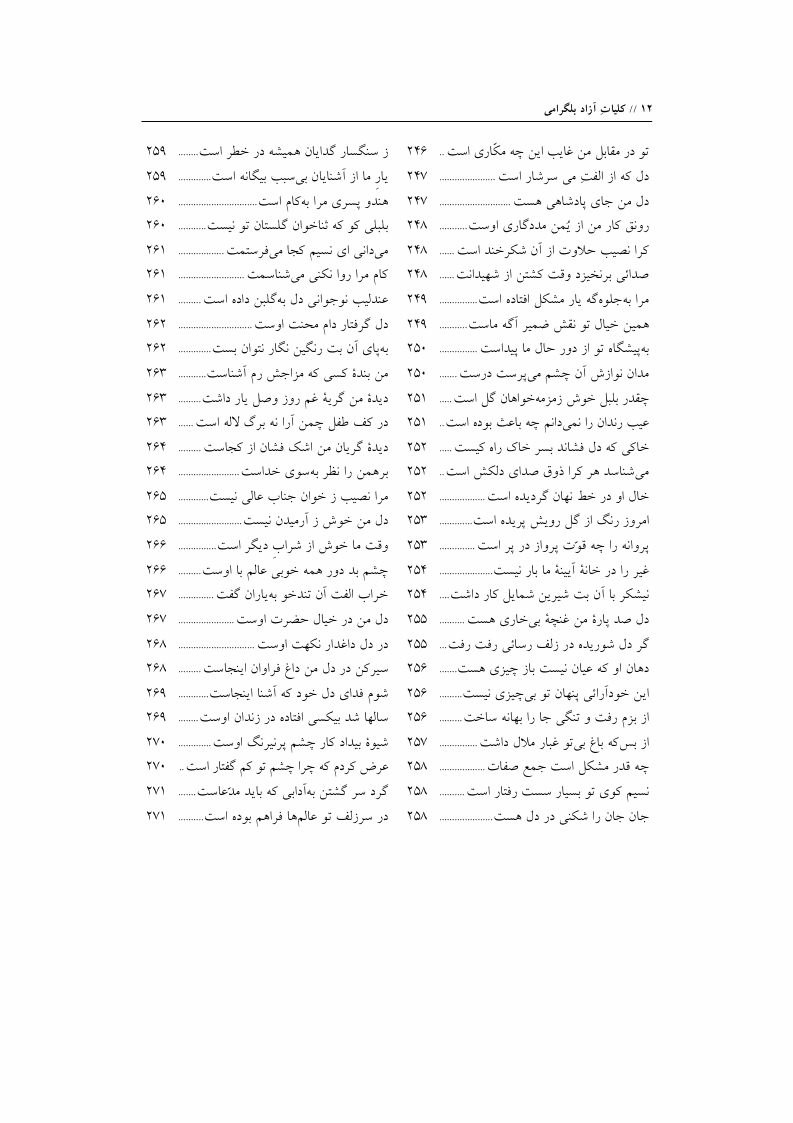 ۱۲ // کلیاتِ آزاد بلگرامی
تو در مقابل من غایب این چه مکّاری است .. ۲۴۶
دل که از الفتِ می سرشار است ...................... ۲۴۷
دل من جای پادشاهی هست ............................ ۲۴۷
رونق کار من از یُمن مددگاری اوست........... ۲۴۸
کرا نصیب حلاوت از آن شکرخند است ...... ۲۴۸
صدائی برنخیزد وقت کشتن از شهیدانت ...... ۲۴۸
مرا به‌جلوه‌گه یار مشکل افتاده است............... ۲۴۹
همین خیال تو نقش ضمیر آگه ماست........... ۲۴۹
به‌پیشگاه تو از دور حال ما پیداست ............... ۲۵۰
مدان نوازش آن چشم می‌پرست درست ....... ۲۵۰
چقدر بلبل خوش زمزمه‌خواهان گل است ..... ۲۵۱
عیب رندان را نمی‌دانم چه باعث بوده است .. ۲۵۱
خاکی که دل فشاند بسر خاک راه کیست ..... ۲۵۲
می‌شناسد هر کرا ذوق صدای دلکش است .. ۲۵۲
خال او در خط نهان گردیده است .................. ۲۵۲
امروز رنگ از گل رویش پریده است............. ۲۵۳
پروانه را چه قوّت پرواز در پر است .............. ۲۵۳
غیر را در خانهٔ آیینهٔ ما بار نیست..................... ۲۵۴
نیشکر با آن بت شیرین شمایل کار داشت.... ۲۵۴
دل صد پارهٔ من غنچهٔ بی‌خاری هست .......... ۲۵۵
گر دل شوریده در زلف رسائی رفت رفت ... ۲۵۵
دهان او که عیان نیست باز چیزی هست....... ۲۵۶
این خودآرائی پنهان تو بی‌چیزی نیست......... ۲۵۶
از بزم رفت و تنگی جا را بهانه ساخت ......... ۲۵۶
از بس‌که باغ بی‌تو غبار ملال داشت ............... ۲۵۷
چه قدر مشکل است جمع صفات .................. ۲۵۸
نسیم کوی تو بسیار سست رفتار است .......... ۲۵۸
جان جان را شکنی در دل هست..................... ۲۵۸
ز سنگسار گدایان همیشه در خطر است........ ۲۵۹
یارِ ما از آشنایان بی‌سبب بیگانه است............. ۲۵۹
هندو پسری مرا به‌کام است............................... ۲۶۰
بلبلی کو که ثناخوان گلستان تو نیست........... ۲۶۰
می‌دانی ای نسیم کجا می‌فرستمت .................. ۲۶۱
کام مرا روا نکنی می‌شناسمت .......................... ۲۶۱
عندلیب نوجوانی دل به‌گلبن داده است ......... ۲۶۱
دل گرفتار دام محنت اوست ............................. ۲۶۲
به‌پای آن بت رنگین نگار نتوان بست............. ۲۶۲
من بندهٔ کسی که مزاجش رم آشناست........... ۲۶۳
دیدهٔ من گریهٔ غم روز وصل یار داشت......... ۲۶۳
در کف طفل چمن آرا نه برگ لاله است ...... ۲۶۳
دیدهٔ گریان من اشک فشان از کجاست ......... ۲۶۴
برهمن را نظر به‌سوی خداست ........................ ۲۶۴
مرا نصیب ز خوان جناب عالی نیست............ ۲۶۵
دل من خوش ز آرمیدن نیست......................... ۲۶۵
وقت ما خوش از شرابِ دیگر است............... ۲۶۶
چشم بد دور همه خوبی عالم با اوست......... ۲۶۶
خراب الفت آن تندخو به‌یاران گفت .............. ۲۶۷
دل من در خیال حضرت اوست ...................... ۲۶۷
در دل داغدار نکهت اوست .............................. ۲۶۸
سیرکن در دل من داغ فراوان اینجاست ......... ۲۶۸
شوم فدای دل خود که آشنا اینجاست............ ۲۶۹
سالها شد بیکسی افتاده در زندان اوست........ ۲۶۹
شیوهٔ بیداد کار چشم پرنیرنگ اوست ............. ۲۷۰
عرض کردم که چرا چشم تو کم گفتار است .. ۲۷۰
گرد سر گشتن به‌آدابی که باید مدّعاست....... ۲۷۱
در سرزلف تو عالم‌ها فراهم بوده است.......... ۲۷۱